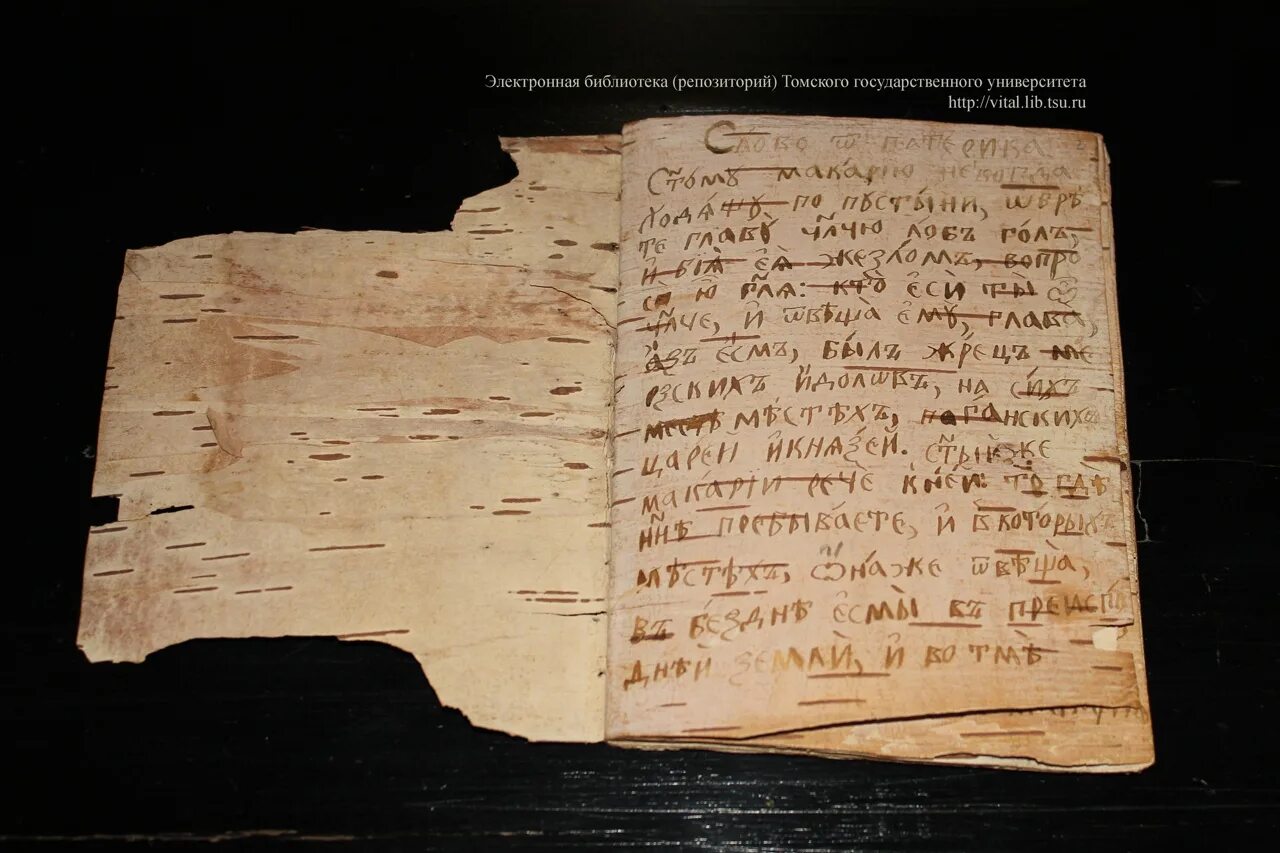 Электронная библиотека (репозиторий) Томского государственного университета
http://vital.lib.tsu.ru
Слово ѿ патерика
Ст҃ому макарїю некогда
ходѧщу по пустыни, ѡбрѣ
те главꙋ чл҃чю лобъ голъ,
и бїѧ еѧ жезломъ, вопро
си ю гл҃ѧ: кто еси ты ѽ
чл҃че, и ѿвѣща емꙋ, глава,
азъ есмъ, былъ жрецъ ме
рзскихъ идолѡвъ, на сихъ
мѣстѣхъ, поганскихъ
царей и кнѧзей. ст҃ыи же
макарїи рече к ней: то гдѣ
нн҃ѣ пребываете, и в которыхъ
мѣстѣхъ, ѽна же ѿвѣща,
въ безднѣ есмы въ преиспо
днѣй земли, и во тмѣ